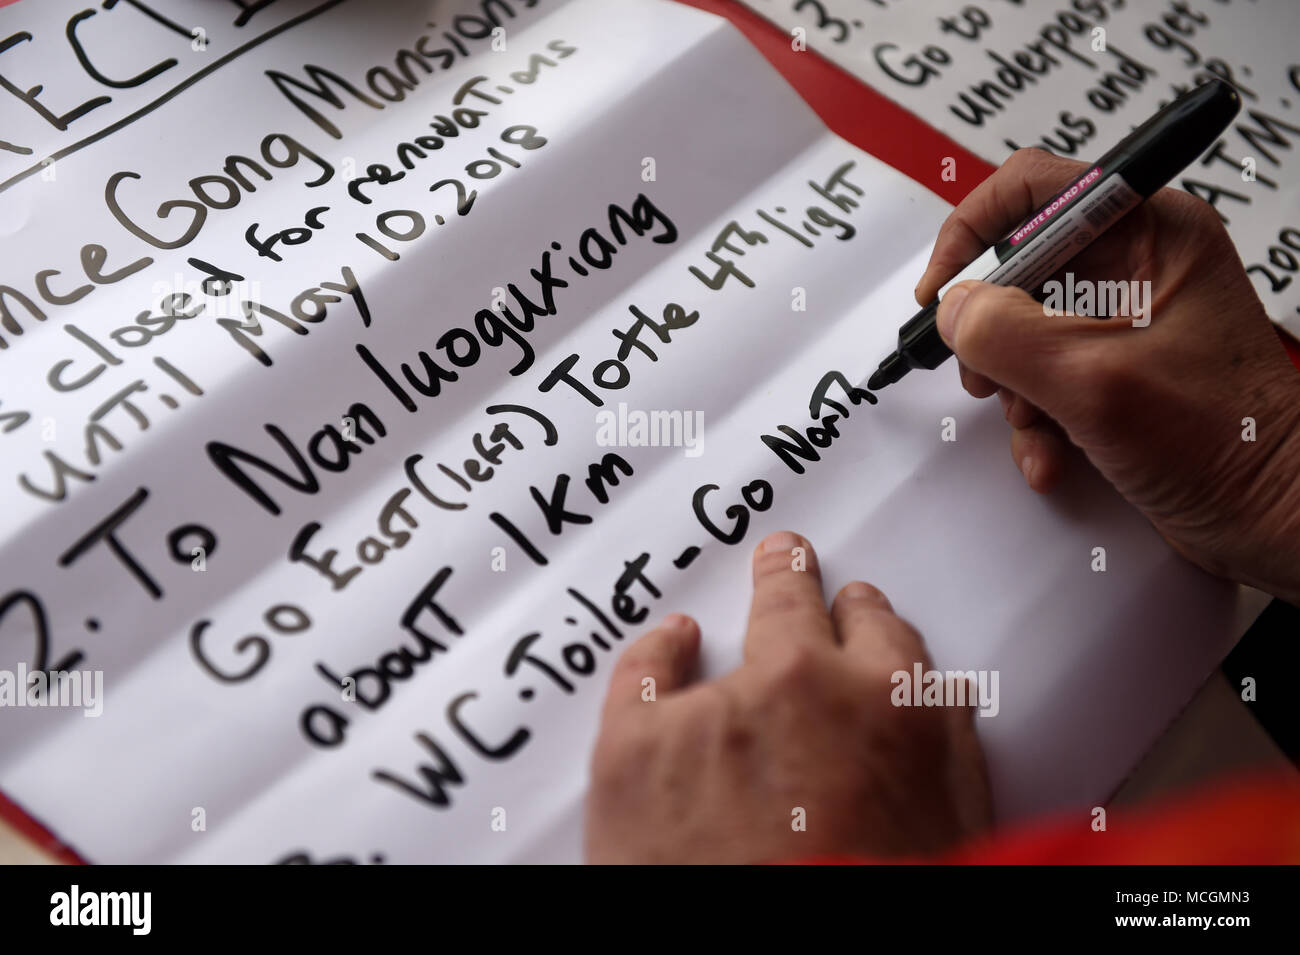 ECTI
nce Gong Mansions
s closed for renovations
until May 10, 2018
2. To Nanluoguxiang
Go East (left) To the 4th light
about 1 Km
WC - Toilet - Go North
3.
Go to
underpass
bus and get
ATM.
200
WHITE BOARD PEN
a alamy stock photo
alamy
Image ID: MCGMN3
www.alamy.com